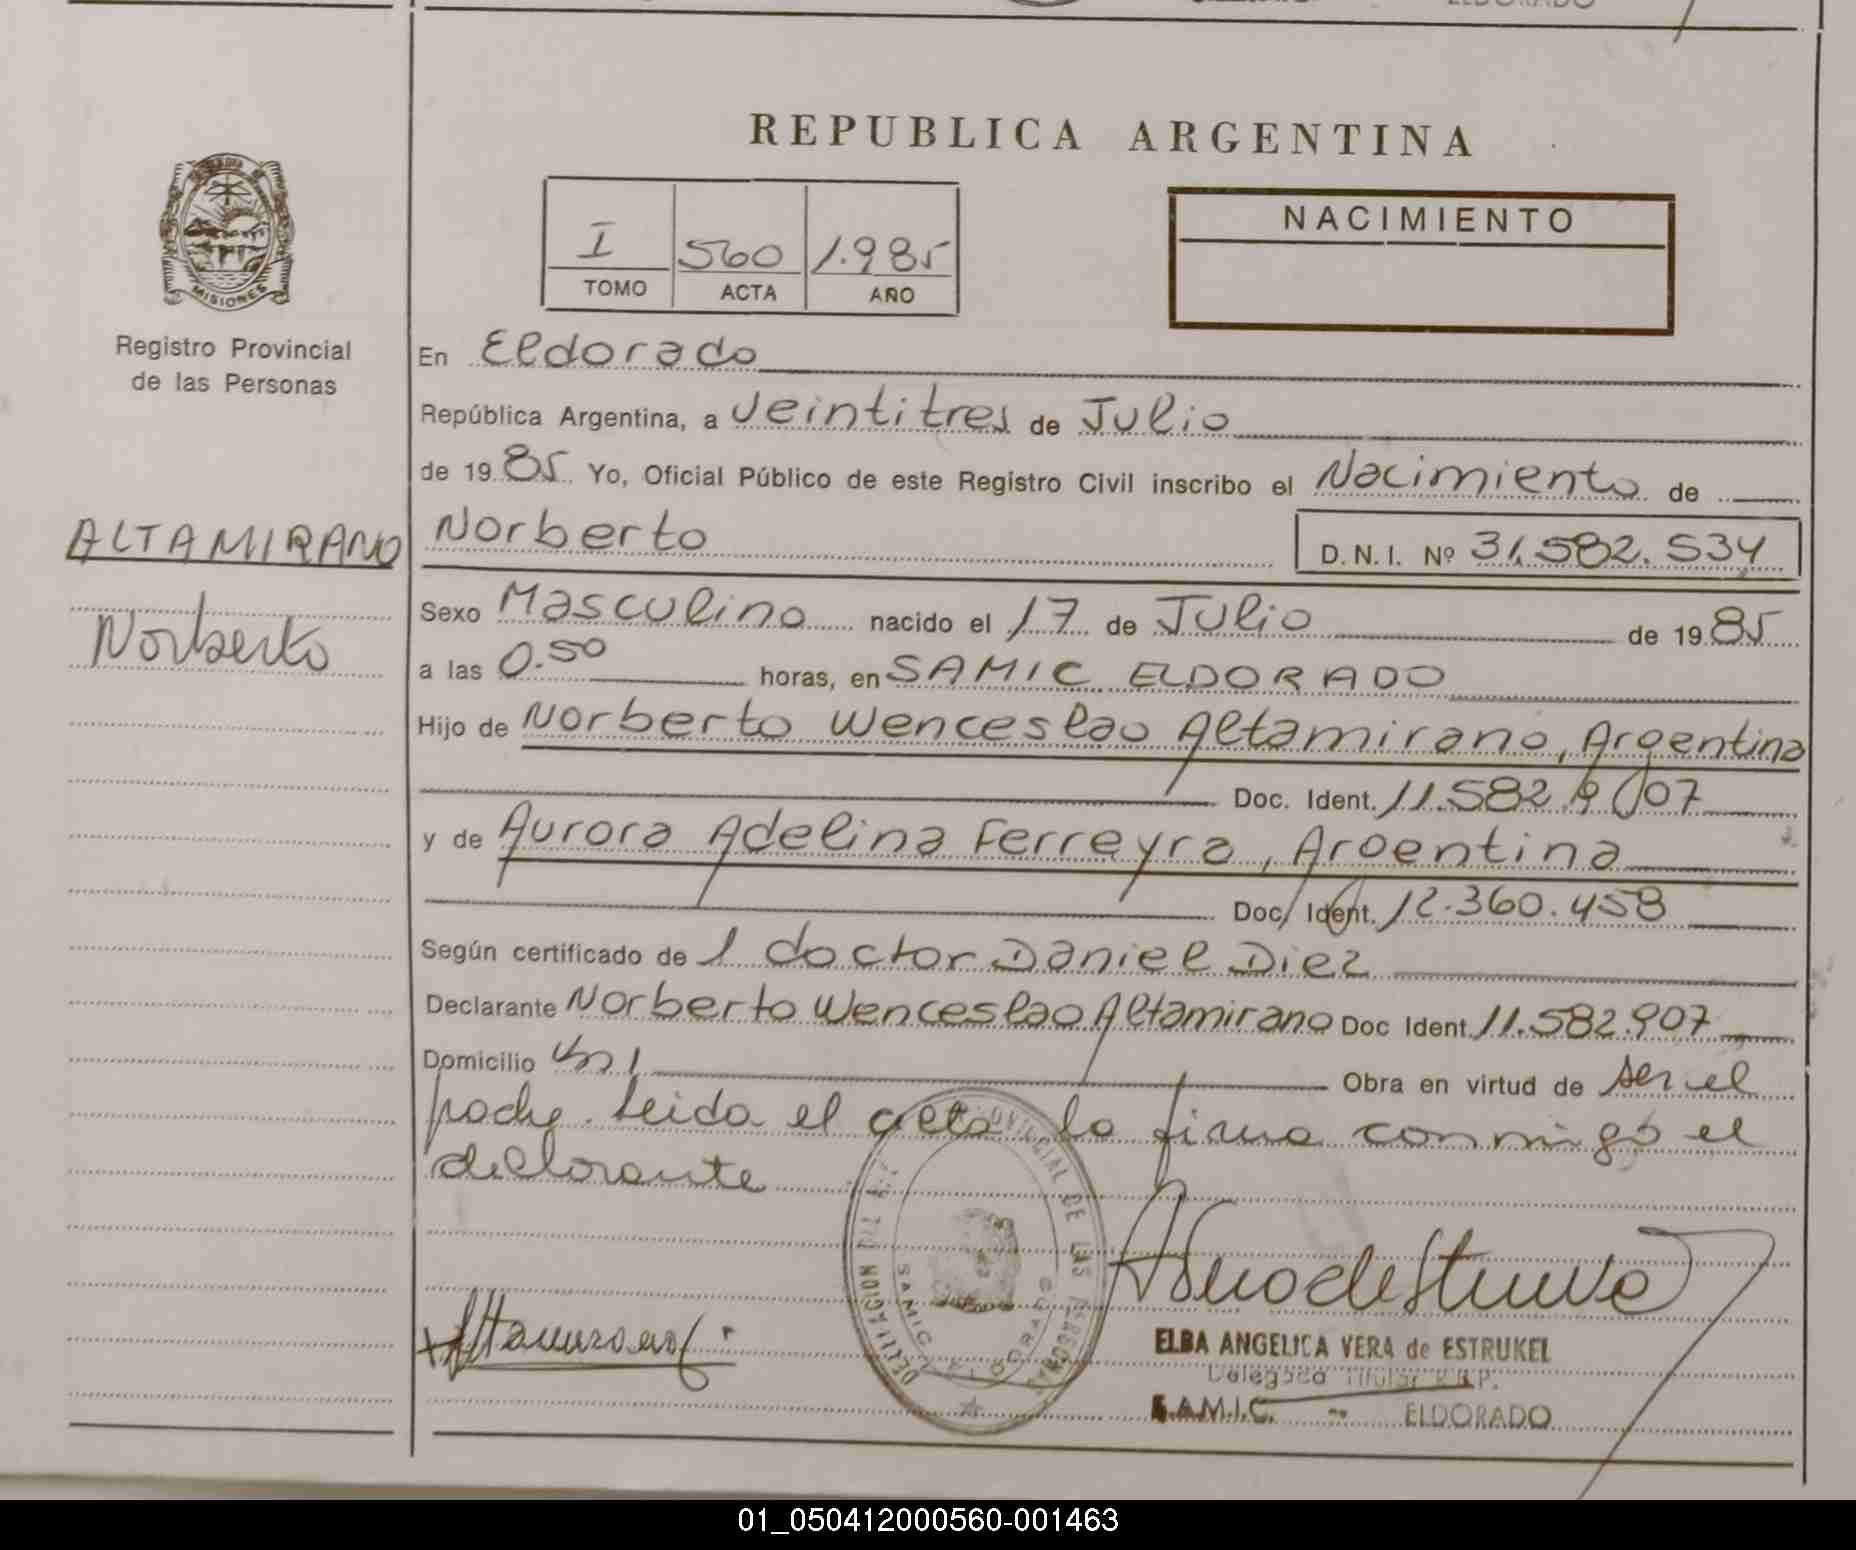 ELDORADO
REPUBLICA ARGENTINA
I 560 1.985
TOMO ACTA AÑO
NACIMIENTO
MISIONES
Registro Provincial
de las Personas
ALTAMIRANO
Norberto
En Eldorado
República Argentina, a veintitres de Julio
de 1985 Yo, Oficial Público de este Registro Civil inscribo el Nacimiento de
Norberto D.N.I. Nº 31.582.534
Sexo Masculino nacido el 17 de Julio de 1985
a las 0.50 horas, en SAMIC ELDORADO
Hijo de Norberto Wenceslao Altamirano, Argentina
Doc. Ident. 11.582.907
y de Aurora Adelina Ferreyra, Argentina
Doc. Ident. 12.360.458
Según certificado de l doctor Daniel Diez
Declarante Norberto Wenceslao Altamirano Doc Ident. 11.582.907
Domicilio Obra en virtud de ser el
padre. Leida el acta la firma conmigo el
declorante
PROVINCIAL DE LAS PERSONAS
DELEGACION
SAMIC ELDORADO
Altamirano
ELBA ANGELICA VERA de ESTRUKEL
Delegada Titular R.P.P.
S.A.M.I.C. - ELDORADO
01_050412000560-001463